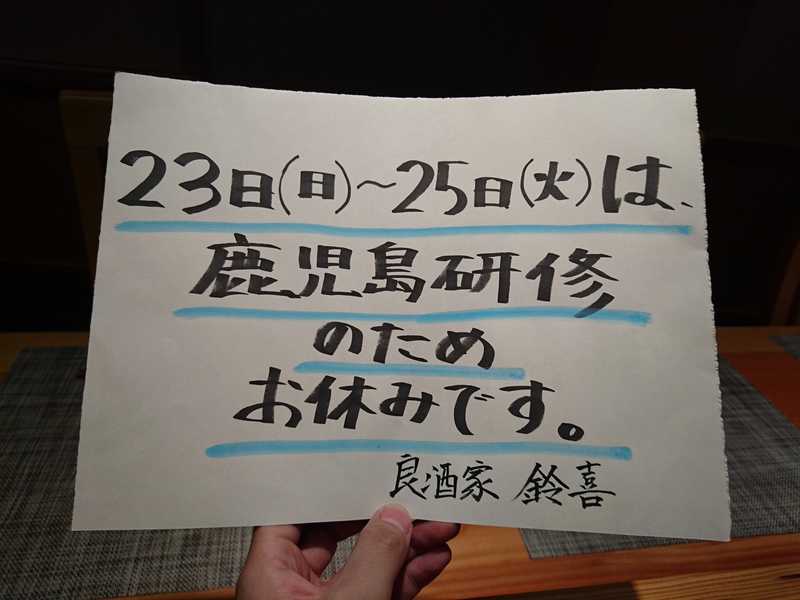 23日(日)～25日(火)は、
鹿児島研修
のため
お休みです。
良酒家 鈴喜